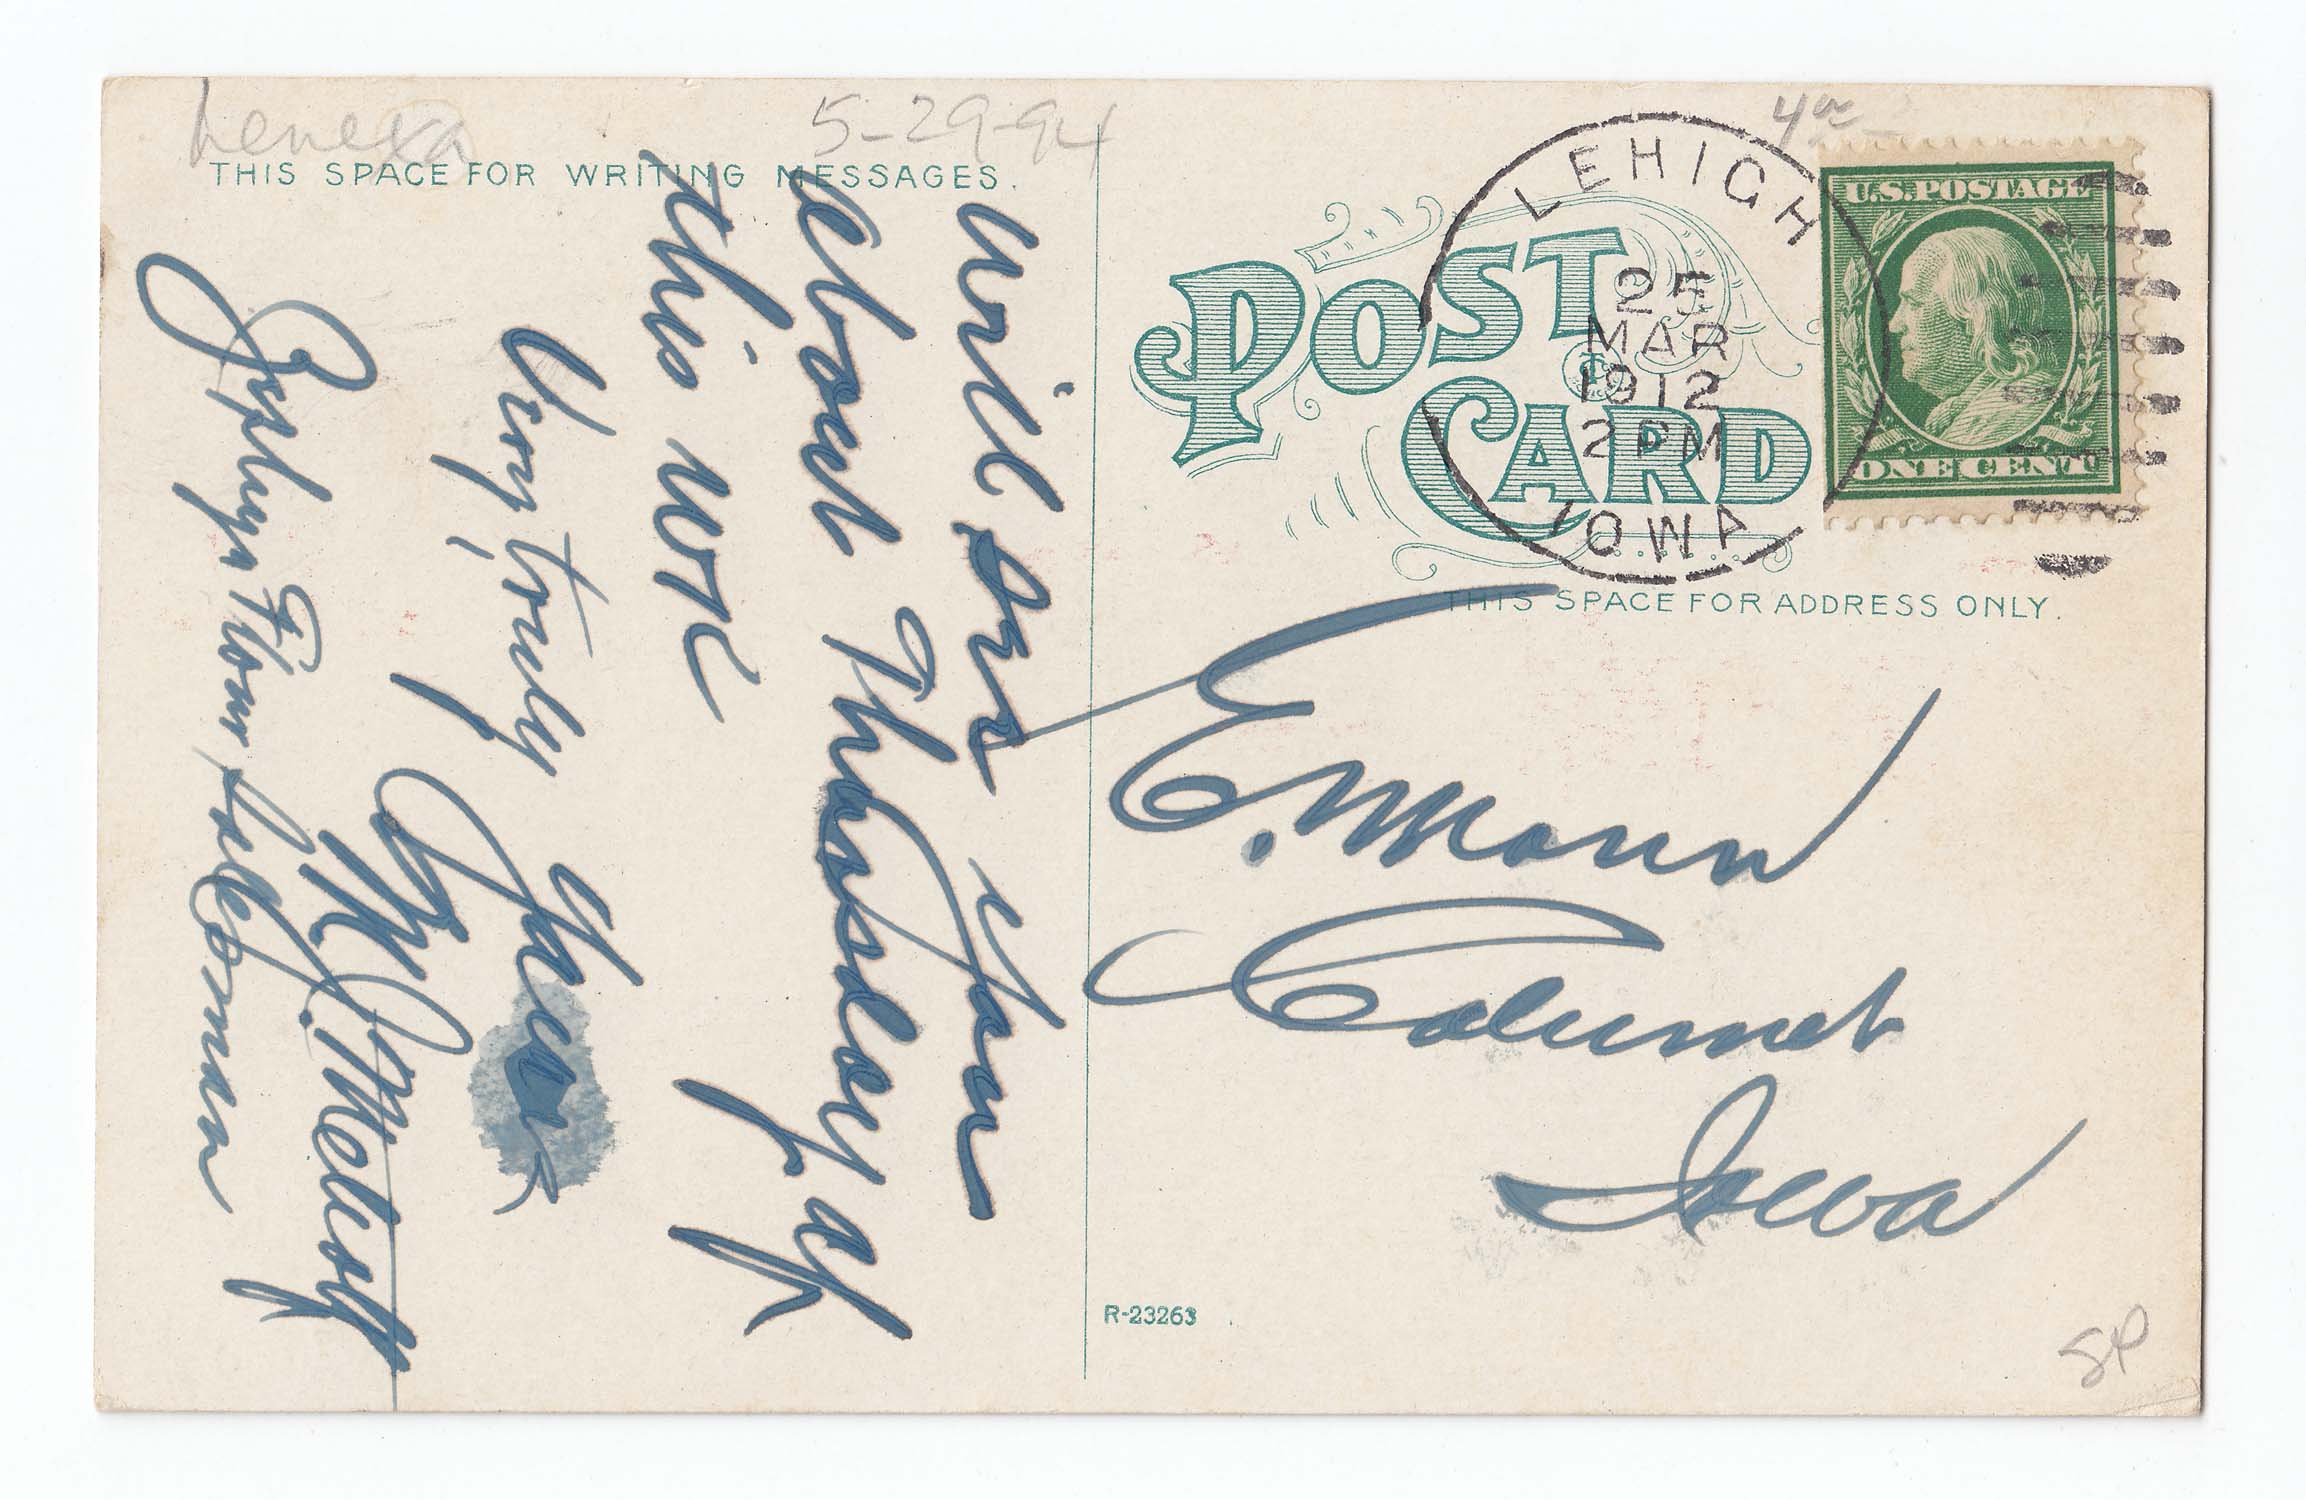 Lenexa
5-29-94
4
THIS SPACE FOR WRITING MESSAGES.
will see you
about Thursday of
this week
Very truly
yours
J. M. Metcalf
Zephyr Flour Salesman
POST CARD
LEHIGH
25
MAR
1912
2 PM
IOWA
U.S. POSTAGE
ONE CENT
THIS SPACE FOR ADDRESS ONLY.
E. Mann
Calumet
Iowa
R-23263